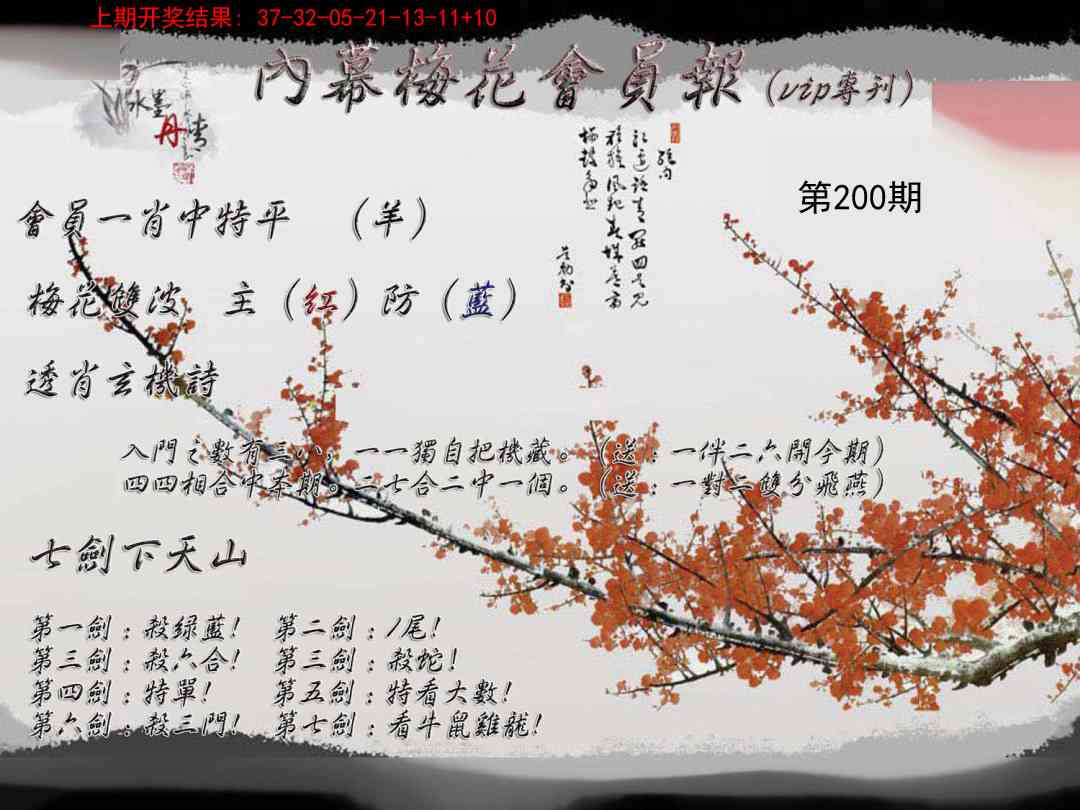 上期开奖结果: 37-32-05-21-13-11+10
內幕梅花會員報(vip專刊)
水墨
丹青
第200期
會員一肖中特平 (羊)
梅花雙波 主(紅)防(藍)
透肖玄機詩
入門之數有三八,一一獨自把機藏。(送:一伴二六開今期)
四四相合中本期。二七合二中一個。(送:一對二雙分飛燕)
七劍下天山
第一劍:殺綠藍! 第二劍:1尾!
第三劍:殺六合! 第三劍:殺蛇!
第四劍:特單! 第五劍:特看大數!
第六劍:殺三門! 第七劍:看牛鼠雞龍!